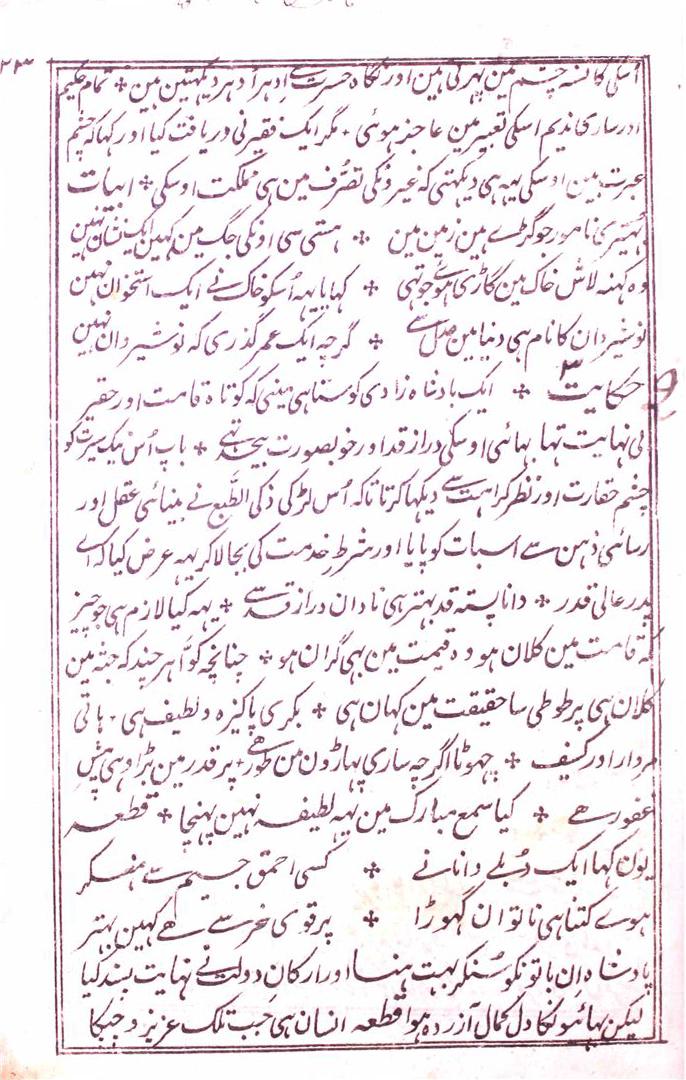 ۲۳
اُسکی کاسہ چشم مین پھرتی ہین اور نگاہ حسرت سے اِدہر اُدہر دیکہتین ہین ٭ تمام حکیم
اور ساری ندیم اسکی تعبیر مین عاجز ہوئی ٭ مگر ایک فقیر نی دریافت کیا اور کہا کہ چشم
عبرت بین اوسکی یہہ ہی دیکہتی کہ غیرونکی تصرُّف مین ہی مملکت اوسکی ٭ ابیات
بُہتیری نامور جو گڑے ہین زمین مین ٭ ہستی سی اونکی جگ مین کہین ایک نشان نہین
وہ کہنہ لاش خاک مین گاڑی ہوئے جو تہی ٭ کہایا یہہ اُسکو خاک نے ایک استخوان نہین
نوشیروان کا نام ہی دنیا مین عدل سے ٭ گرچہ ایک عمر گذری کہ نوشیروان نہین
حکایت ۳ ٭ ایک بادشاہ زادی کو سنا ہی مینی کہ کوتاہ قامت اور حقیر
بی نہایت تہا بہائی اوسکی دراز قد اور خوبصورت بیحد تہے ٭ باپ اُس نیک سیرت کو
چشم حقارت اور نظر کراہت سے دیکہا کرتا تاکہ اُس لڑکی ذکی الطَّبع نے بینائی عقل اور
رسائی ذہن سے اسبات کو پایا اور شرطِ خدمت کی بجا لاکر یہہ عرض کیا کہ اے
پدر عالی قدر ٭ دانا پستہ قد بہتر ہی نادان دراز قد سے ٭ یہہ کیا لازم ہی جو چیز
کہ قامت مین کلان ہو وہ قیمت مین بہی گران ہو ٭ چنانچہ کوّا ہر چند کہ جثہ مین
کلان ہی پر طوطی سا حقیقت مین کہان ہی ٭ بکری پاکیزہ و لطیف ہی ٭ ہاتی
مردار اور کثیف ٭ چہوٹا اگرچہ ساری پہاڑون مین طور ہے ٭ پر قدر مین بڑا وہی پیشِ
غفور ہے ٭ کیا سمع مبارک مین یہہ لطیفہ نہین پہنچا ٭ قطعہ
یون کہا ایک دُبلے دانا نے ٭ کسی احمق جسیم سے ہنسکر
ہووے کتنا ہی ناتوان گہوڑا ٭ پر قوی خر سے ہے کہین بہتر
پادشاہ اِن باتونکو سُنکر بہت ہنسا اور ارکانِ دولت نے نہایت پسند کیا
لیکن بہائیونکا دل کمال آزردہ ہوا قطعہ انسان ہی جب تلک عزیزو چپکا